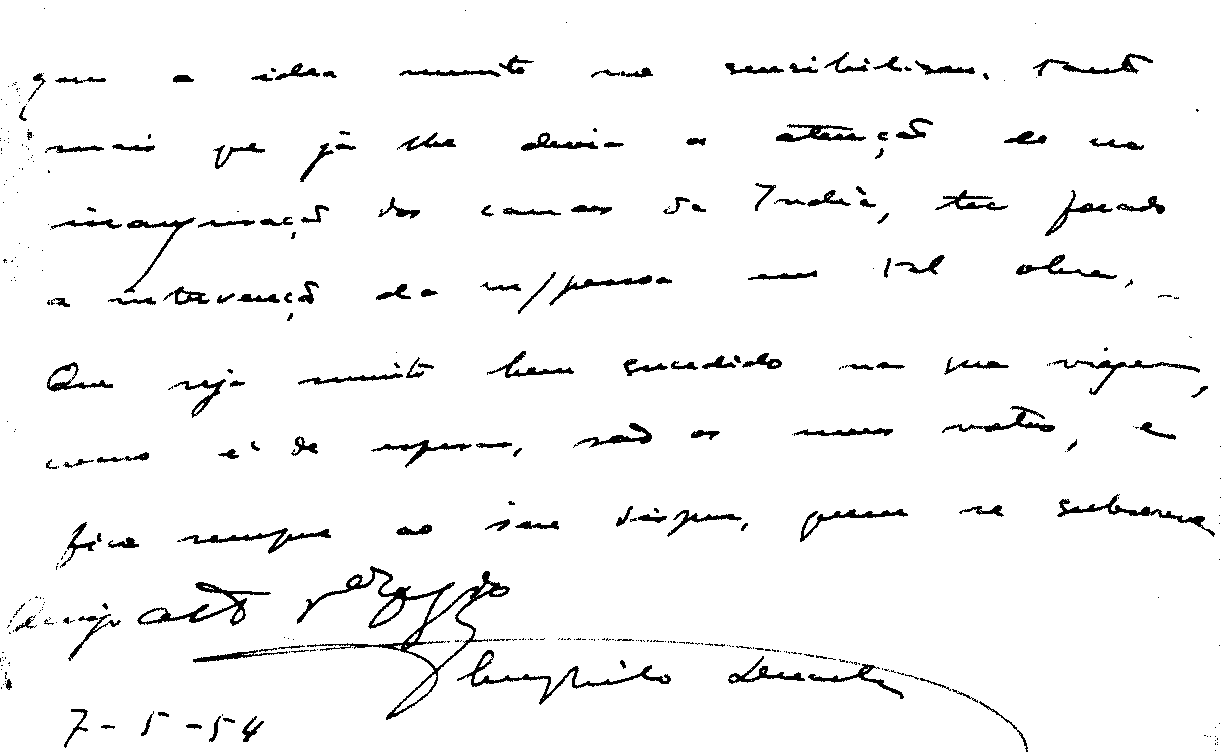 que a idea muito me sensibilisou. Tanto
mais que já lhe devia a atenção de na
inauguração dos canaes da India, ter focado
a intervenção da m/pessoa em tal obra.
Que seja muito bem sucedido na sua viagem,
como é de esperar, são os meus votos, e
fica sempre ao seu dispor, quem se subscreve
Amigo atto
7-5-54